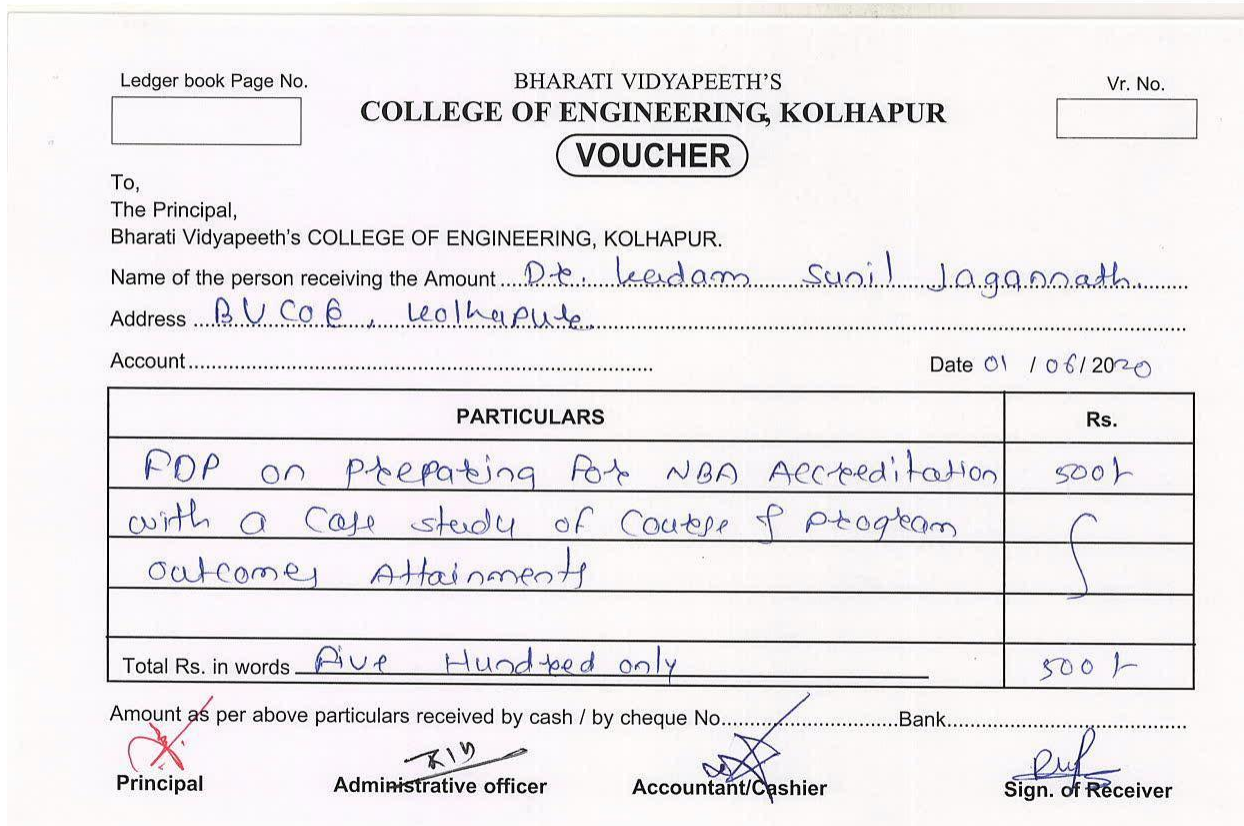 Ledger book Page No.
BHARATI VIDYAPEETH'S
Vr. No.
COLLEGE OF ENGINEERING, KOLHAPUR
VOUCHER
To,
The Principal,
Bharati Vidyapeeth's COLLEGE OF ENGINEERING, KOLHAPUR.
Name of the person receiving the Amount Dr. Kadam Sunil Jagannath
Address BVCOE, Kolhapur.
Account Date 01 / 06 / 2020
PARTICULARS Rs.
FDP on Preparing For NBA Accreditation 500/-
with a Case study of Course & program
outcomes Attainments
Total Rs. in words Five Hundred only 500/-
Amount as per above particulars received by cash / by cheque No. Bank
Principal Administrative officer Accountant/Cashier Sign. of Receiver